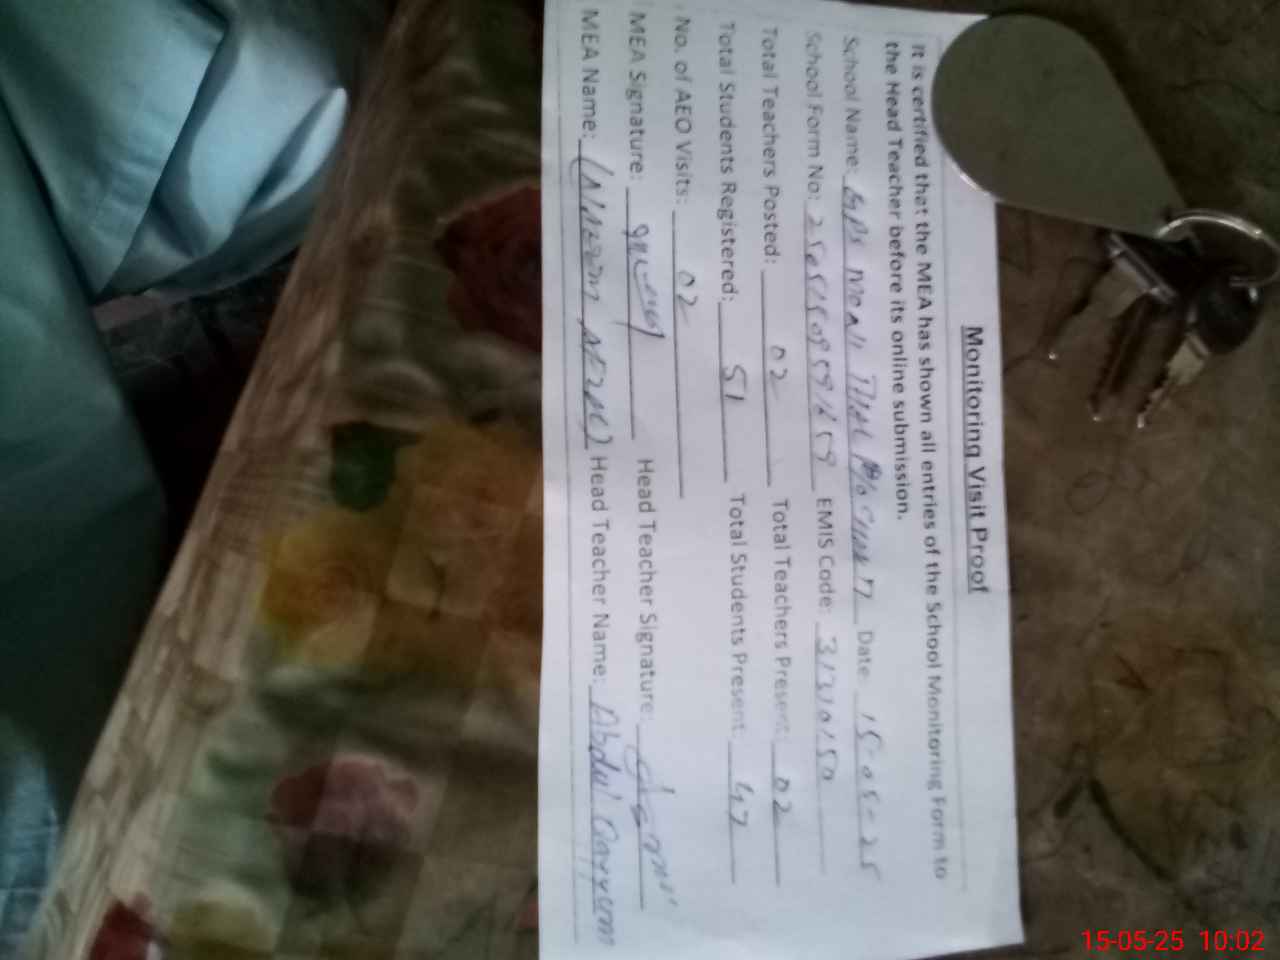 Monitoring Visit Proof
It is certified that the MEA has shown all entries of the School Monitoring Form to
the Head Teacher before its online submission.
School Name: GPS Date 15-05-25
School Form No: EMIS Code: 31310150
Total Teachers Posted: 02 Total Teachers Present: 02
Total Students Registered: 51 Total Students Present: 47
No. of AEO Visits: 02
MEA Signature: Head Teacher Signature:
MEA Name: Head Teacher Name: Abdul Qayyum
15-05-25 10:02